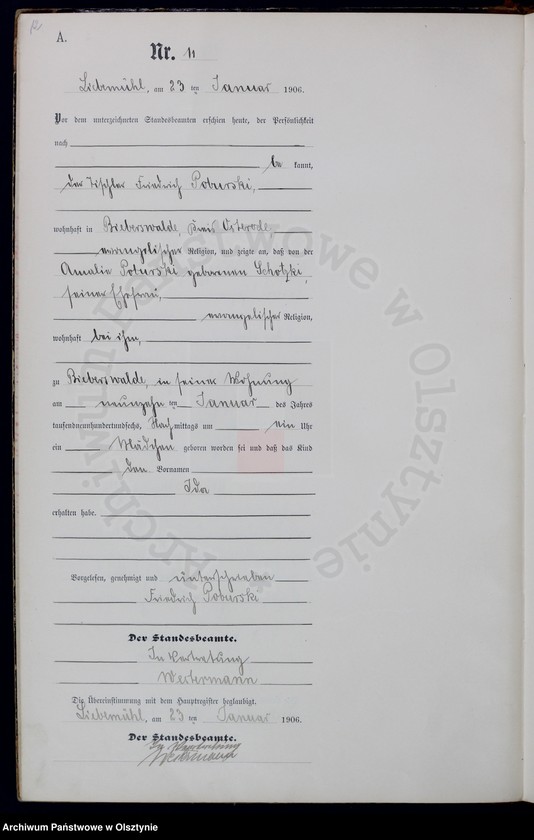 A.
Nr. 11
Liebemühl, am 23 ten Januar 1906.
Vor dem unterzeichneten Standesbeamten erschien heute, der Persönlichkeit
nach
be kannt,
der Tischler Friedrich Poburski,
wohnhaft in Bieberswalde, Kreis Osterode,
evangelischer Religion, und zeigte an, daß von der
Amalie Poburski geborenen Schotzki,
seiner Ehefrau,
evangelischer Religion,
wohnhaft bei ihm,
zu Bieberswalde, in seiner Wohnung
am neunzehn ten Januar des Jahres
tausendneunhundertundsechs, Nachmittags um ein Uhr
ein Mädchen geboren worden sei und daß das Kind
den Vornamen
Ida
erhalten habe.
Vorgelesen, genehmigt und unterschrieben
Friedrich Poburski
Der Standesbeamte.
In Vertretung
Westermann
Die Übereinstimmung mit dem Hauptregister beglaubigt.
Liebemühl, am 23 ten Januar 1906.
Der Standesbeamte.
In Vertretung
Westermann
Archiwum Państwowe w Olsztynie
Archiwum Państwowe w Olsztynie